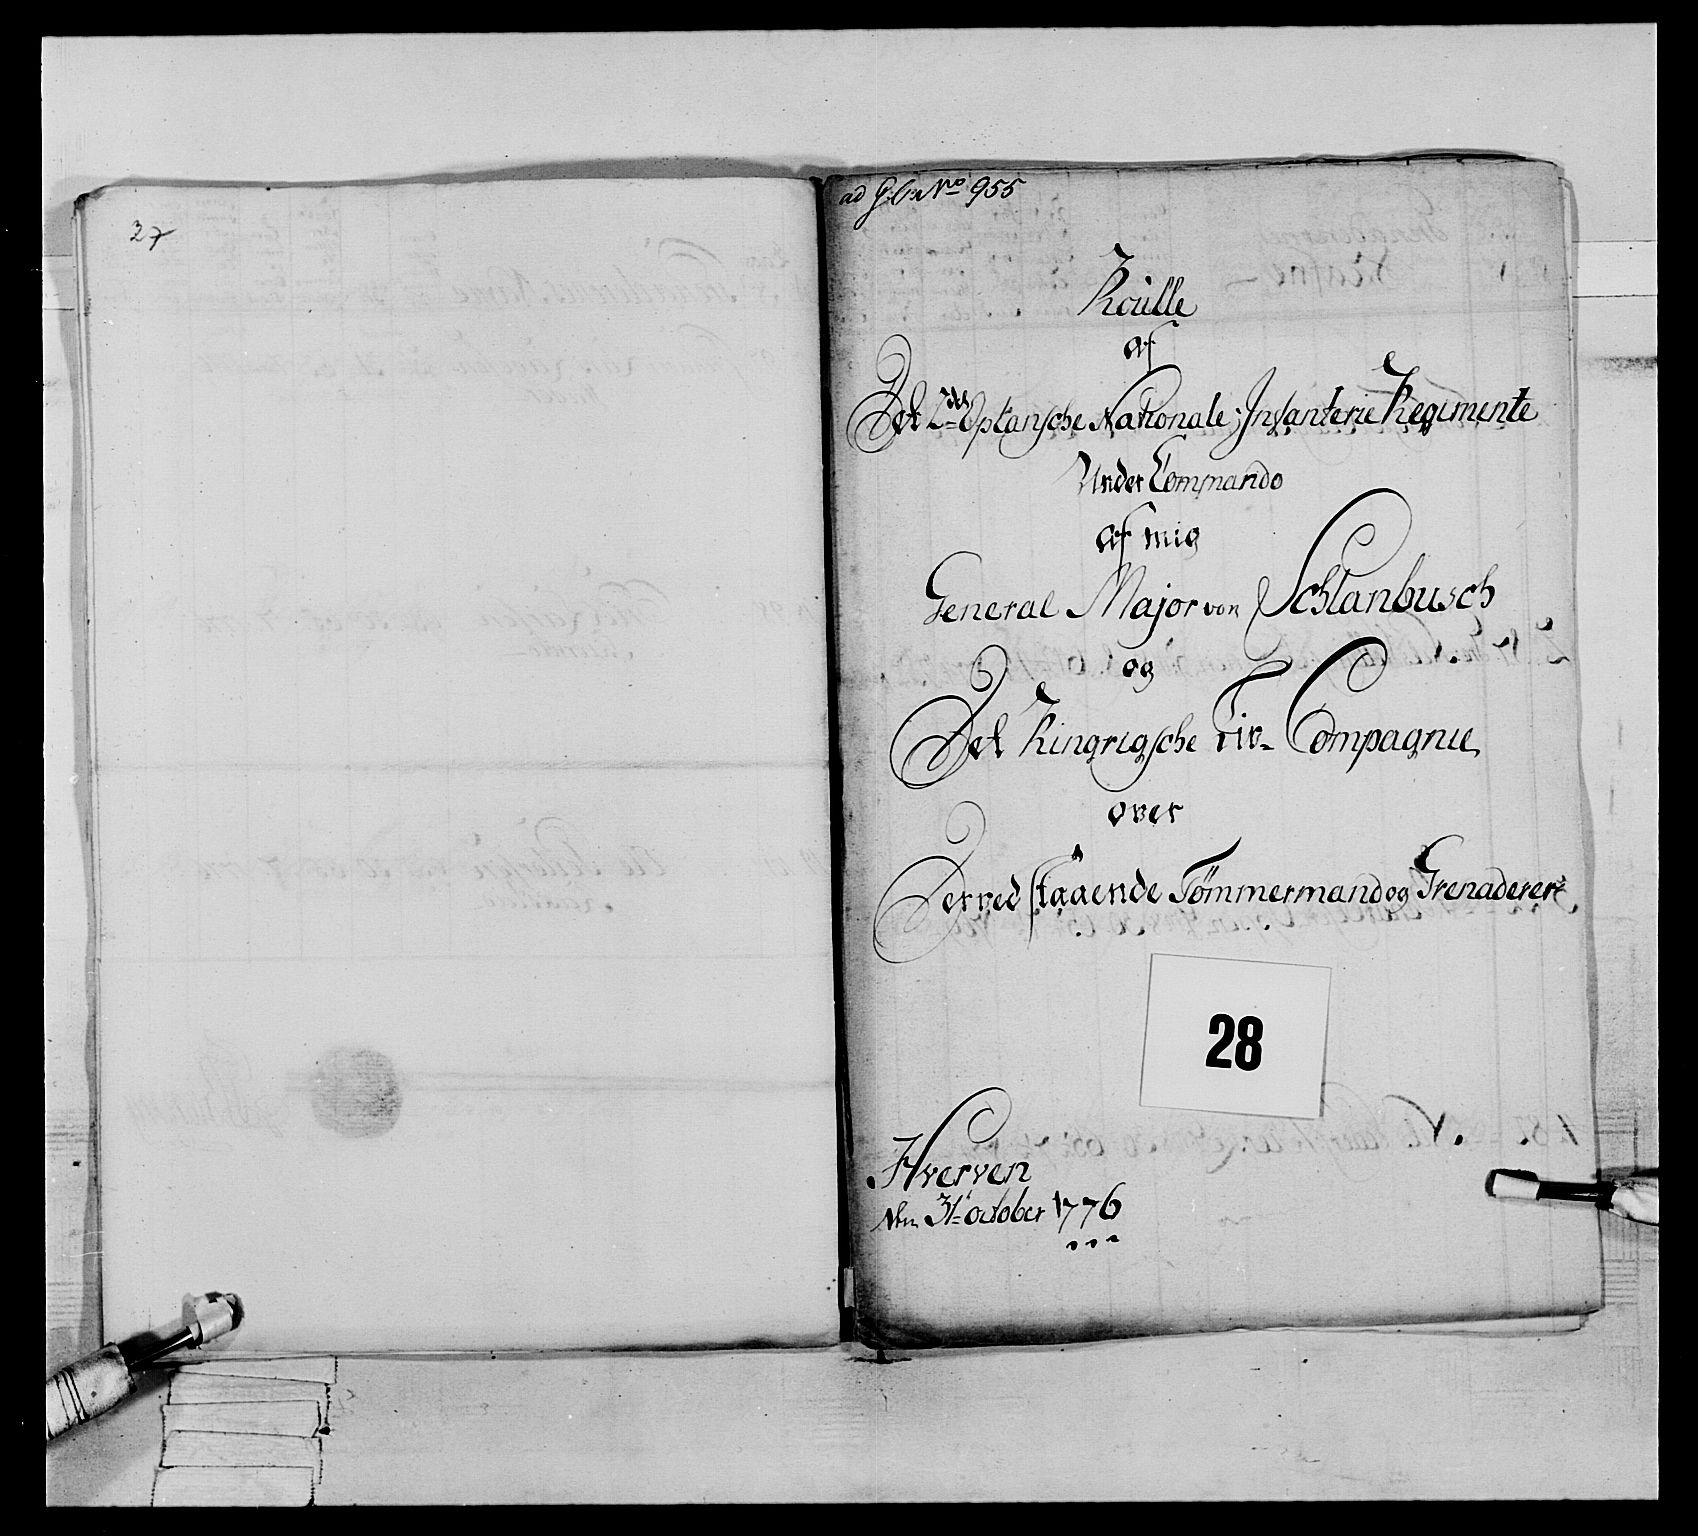 27
ad G:C: No 955
Roulle
af
Det 2det Oplansche Nationale Infanterie Regimente
Under Commando
af mig
General Major von Schlanbusch
og
Det Ringrigsche Liv- Compagnie
over
Derved staaende Tömmermand og Grenaderer
28
Hverven
den 31t October 1776